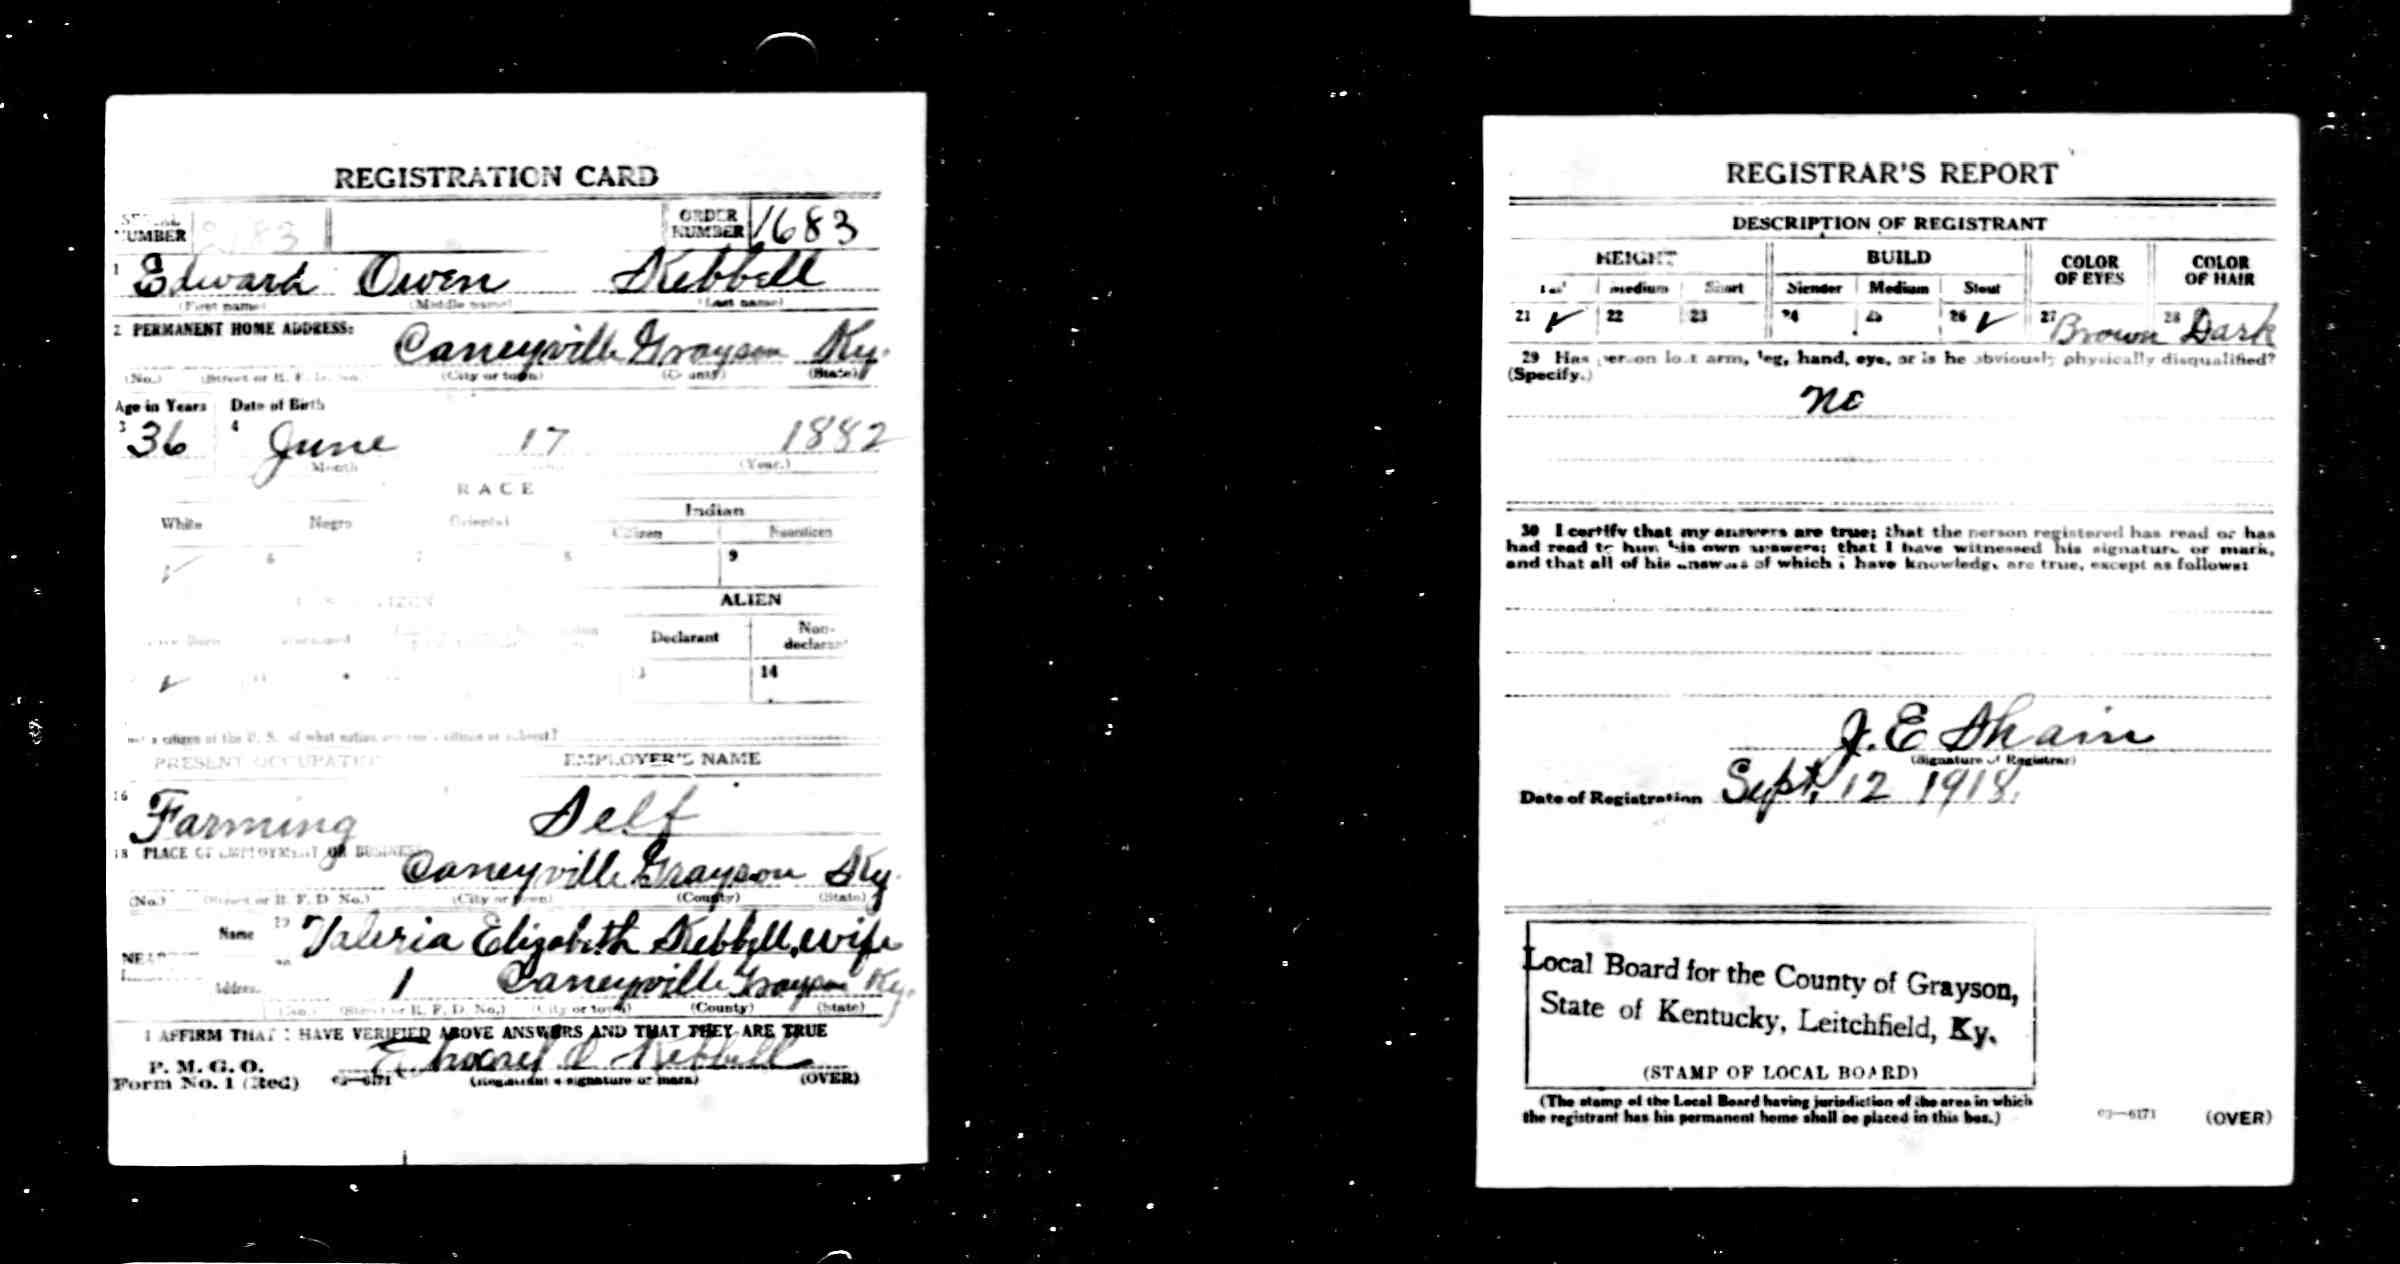 REGISTRATION CARD
SERIAL NUMBER 2183 ORDER NUMBER 1683
1 Edward Owen Kebbell
(First name) (Middle name) (Last name)
2 PERMANENT HOME ADDRESS:
Caneyville Grayson Ky.
(No.) (Street or R. F. D. No.) (City or town) (County) (State)
Age in Years Date of Birth
3 36 4 June 17 1882
Month (Year.)
RACE
White Negro Oriental Indian
Citizen Noncitizen
✓ 6 7 8 9
CITIZEN ALIEN
Declarant Non-declarant
✓ 11 13 14
not a citizen of the U. S. of what nation are you a citizen or subject?
PRESENT OCCUPATION EMPLOYER'S NAME
16 Farming Self
18 PLACE OF EMPLOYMENT OR BUSINESS
Caneyville Grayson Ky.
(No.) (Street or R. F. D. No.) (City or town) (County) (State)
Name 19 Valeria Elizabeth Kebbell, wife
Address 1 Caneyville Grayson Ky.
(No.) (Street or R. F. D. No.) (City or town) (County) (State)
I AFFIRM THAT I HAVE VERIFIED ABOVE ANSWERS AND THAT THEY ARE TRUE
P. M. G. O.
Form No. 1 (Red) 03—6171 Edward O Kebbell
(Registrant's signature or mark) (OVER)
REGISTRAR'S REPORT
DESCRIPTION OF REGISTRANT
HEIGHT BUILD COLOR OF EYES COLOR OF HAIR
Tall Medium Short Slender Medium Stout
21 ✓ 22 23 24 25 26 ✓ 27 Brown 28 Dark
29 Has person lost arm, leg, hand, eye, or is he obviously physically disqualified?
(Specify.)
no
30 I certify that my answers are true; that the person registered has read or has
had read to him his own answers; that I have witnessed his signature or mark,
and that all of his answers of which I have knowledge are true, except as follows:
J. E. Shain
(Signature of Registrar)
Date of Registration Sept. 12 1918.
Local Board for the County of Grayson,
State of Kentucky, Leitchfield, Ky.
(STAMP OF LOCAL BOARD)
(The stamp of the Local Board having jurisdiction of the area in which
the registrant has his permanent home shall be placed in this box.)
03—6171 (OVER)